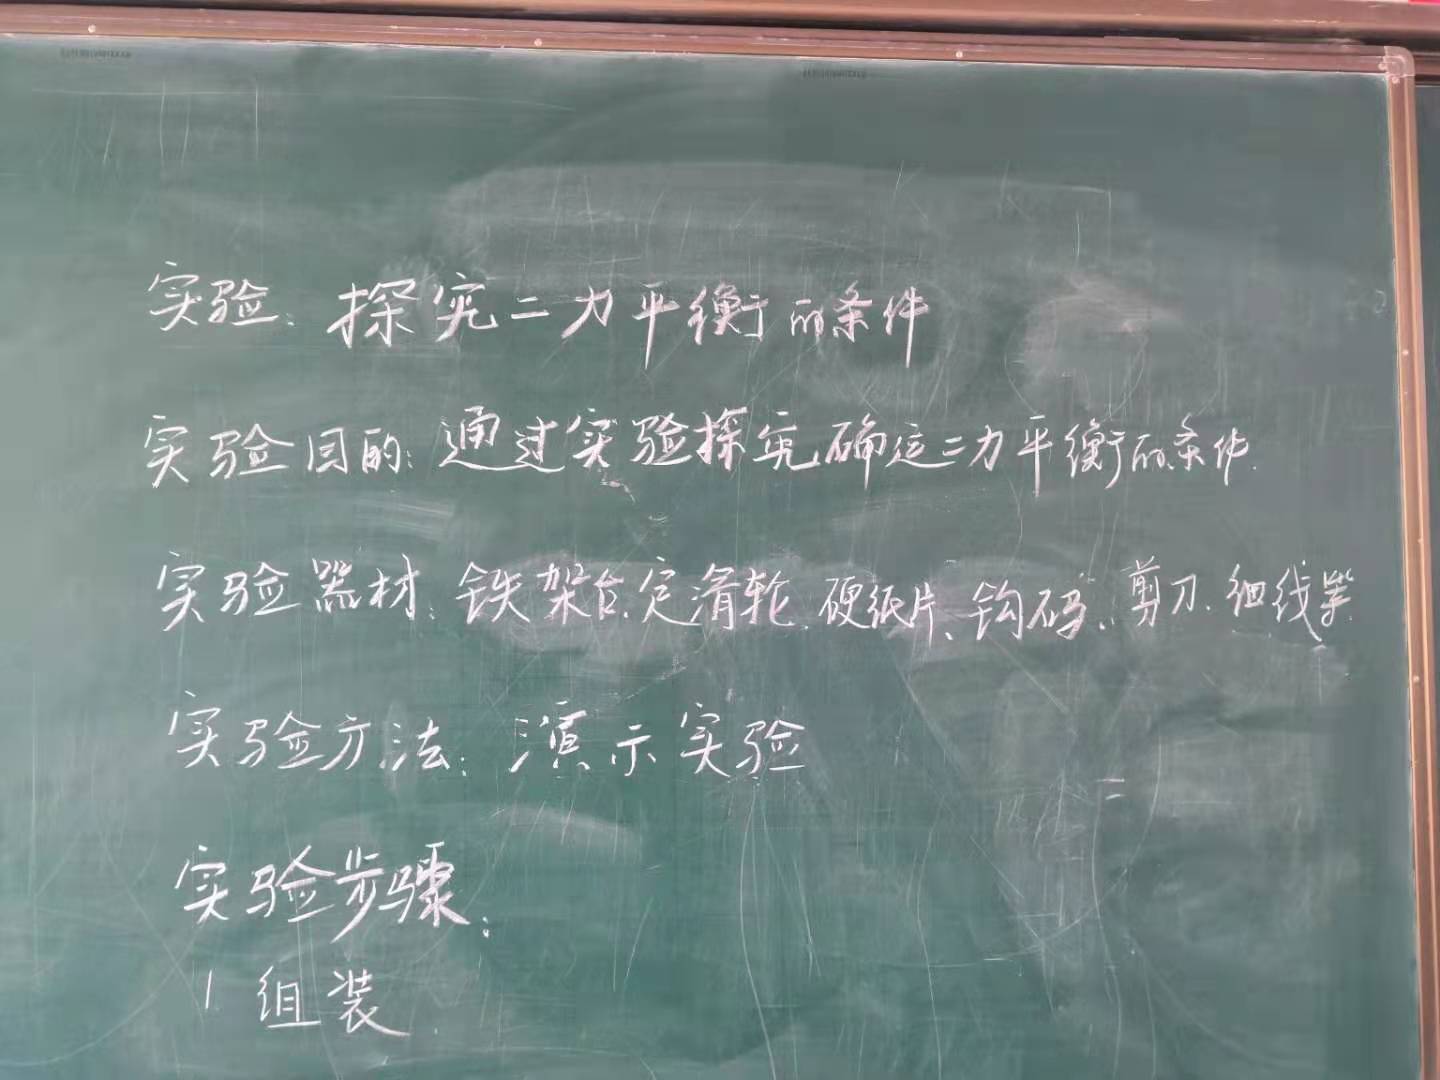 实验:探究二力平衡的条件
实验目的:通过实验探究确定二力平衡的条件.
实验器材:铁架台、定滑轮、硬纸片、钩码、剪刀、细线等.
实验方法:演示实验
实验步骤:
1 组装